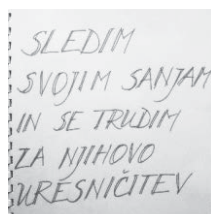 SLEDIM
SVOJIM SANJAM
IN SE TRUDIM
ZA NJIHOVO
URESNIČITEV